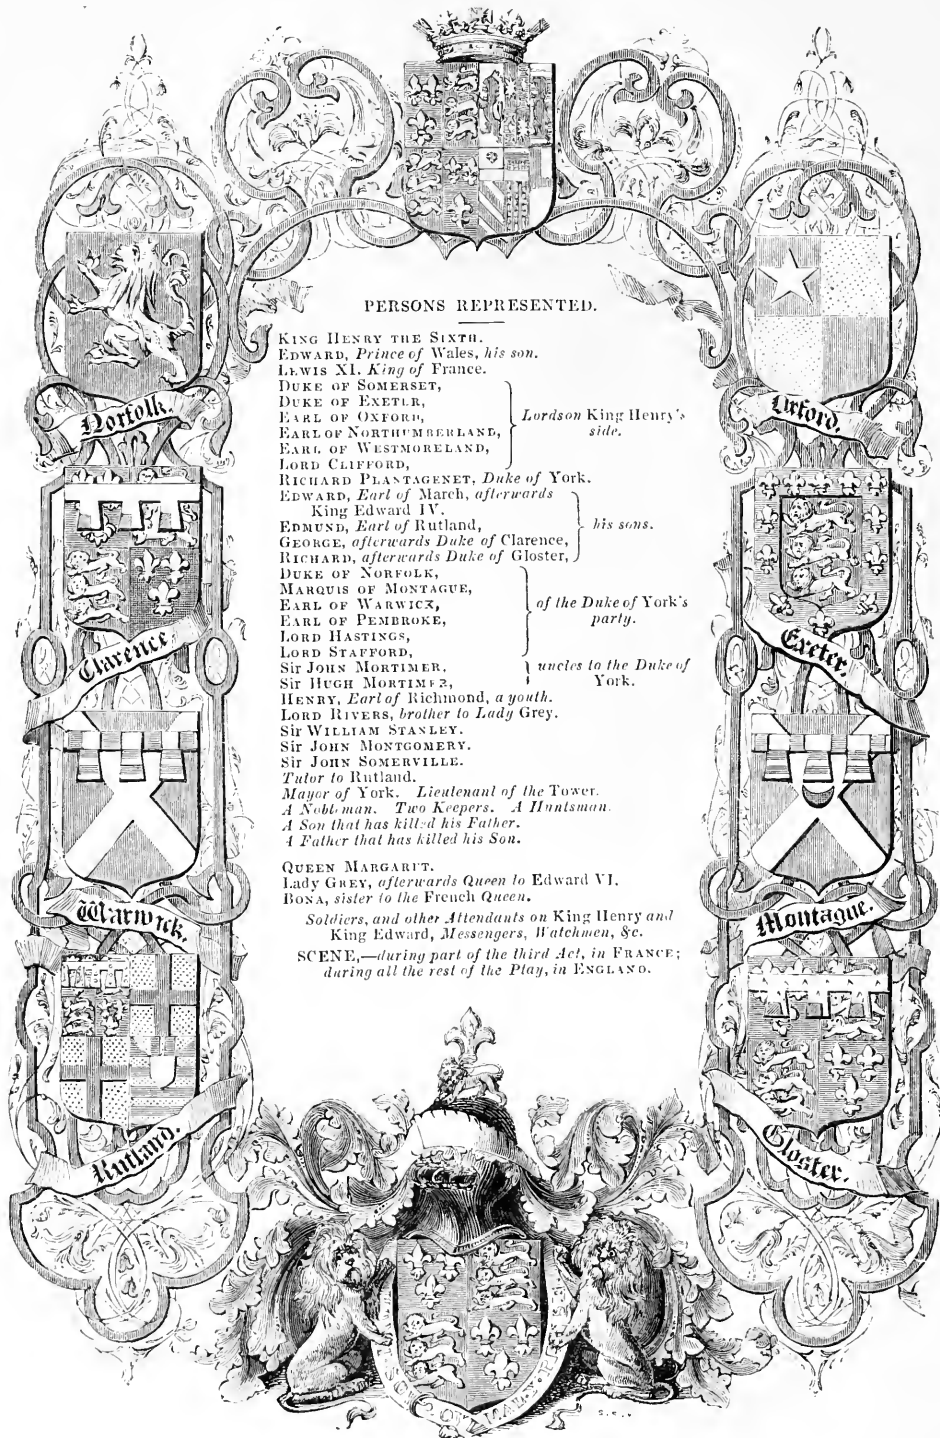 PERSONS REPRESENTED.
KING HENRY THE SIXTH.
EDWARD, Prince of Wales, his son.
LEWIS XI. King of France.
DUKE OF SOMERSET,
DUKE OF EXETER,
EARL OF OXFORD,
EARL OF NORTHUMBERLAND,
EARL OF WESTMORELAND,
LORD CLIFFORD,
Lords on King Henry's
side.
RICHARD PLANTAGENET, Duke of York.
EDWARD, Earl of March, afterwards
King Edward IV.
EDMUND, Earl of Rutland,
GEORGE, afterwards Duke of Clarence,
RICHARD, afterwards Duke of Gloster,
his sons.
DUKE OF NORFOLK,
MARQUIS OF MONTAGUE,
EARL OF WARWICK,
EARL OF PEMBROKE,
LORD HASTINGS,
LORD STAFFORD,
of the Duke of York's
party.
Sir JOHN MORTIMER,
Sir HUGH MORTIMER,
uncles to the Duke of
York.
HENRY, Earl of Richmond, a youth.
LORD RIVERS, brother to Lady Grey.
Sir WILLIAM STANLEY.
Sir JOHN MONTGOMERY.
Sir JOHN SOMERVILLE.
Tutor to Rutland.
Mayor of York. Lieutenant of the Tower.
A Nobleman. Two Keepers. A Huntsman.
A Son that has killed his Father.
A Father that has killed his Son.
QUEEN MARGARET.
Lady GREY, afterwards Queen to Edward VI.
BONA, sister to the French Queen.
Soldiers, and other Attendants on King Henry and
King Edward, Messengers, Watchmen, &c.
SCENE,—during part of the third Act, in FRANCE;
during all the rest of the Play, in ENGLAND.
Norfolk.
Oxford.
Clarence.
Exeter.
Warwick.
Montague.
Rutland.
Gloster.